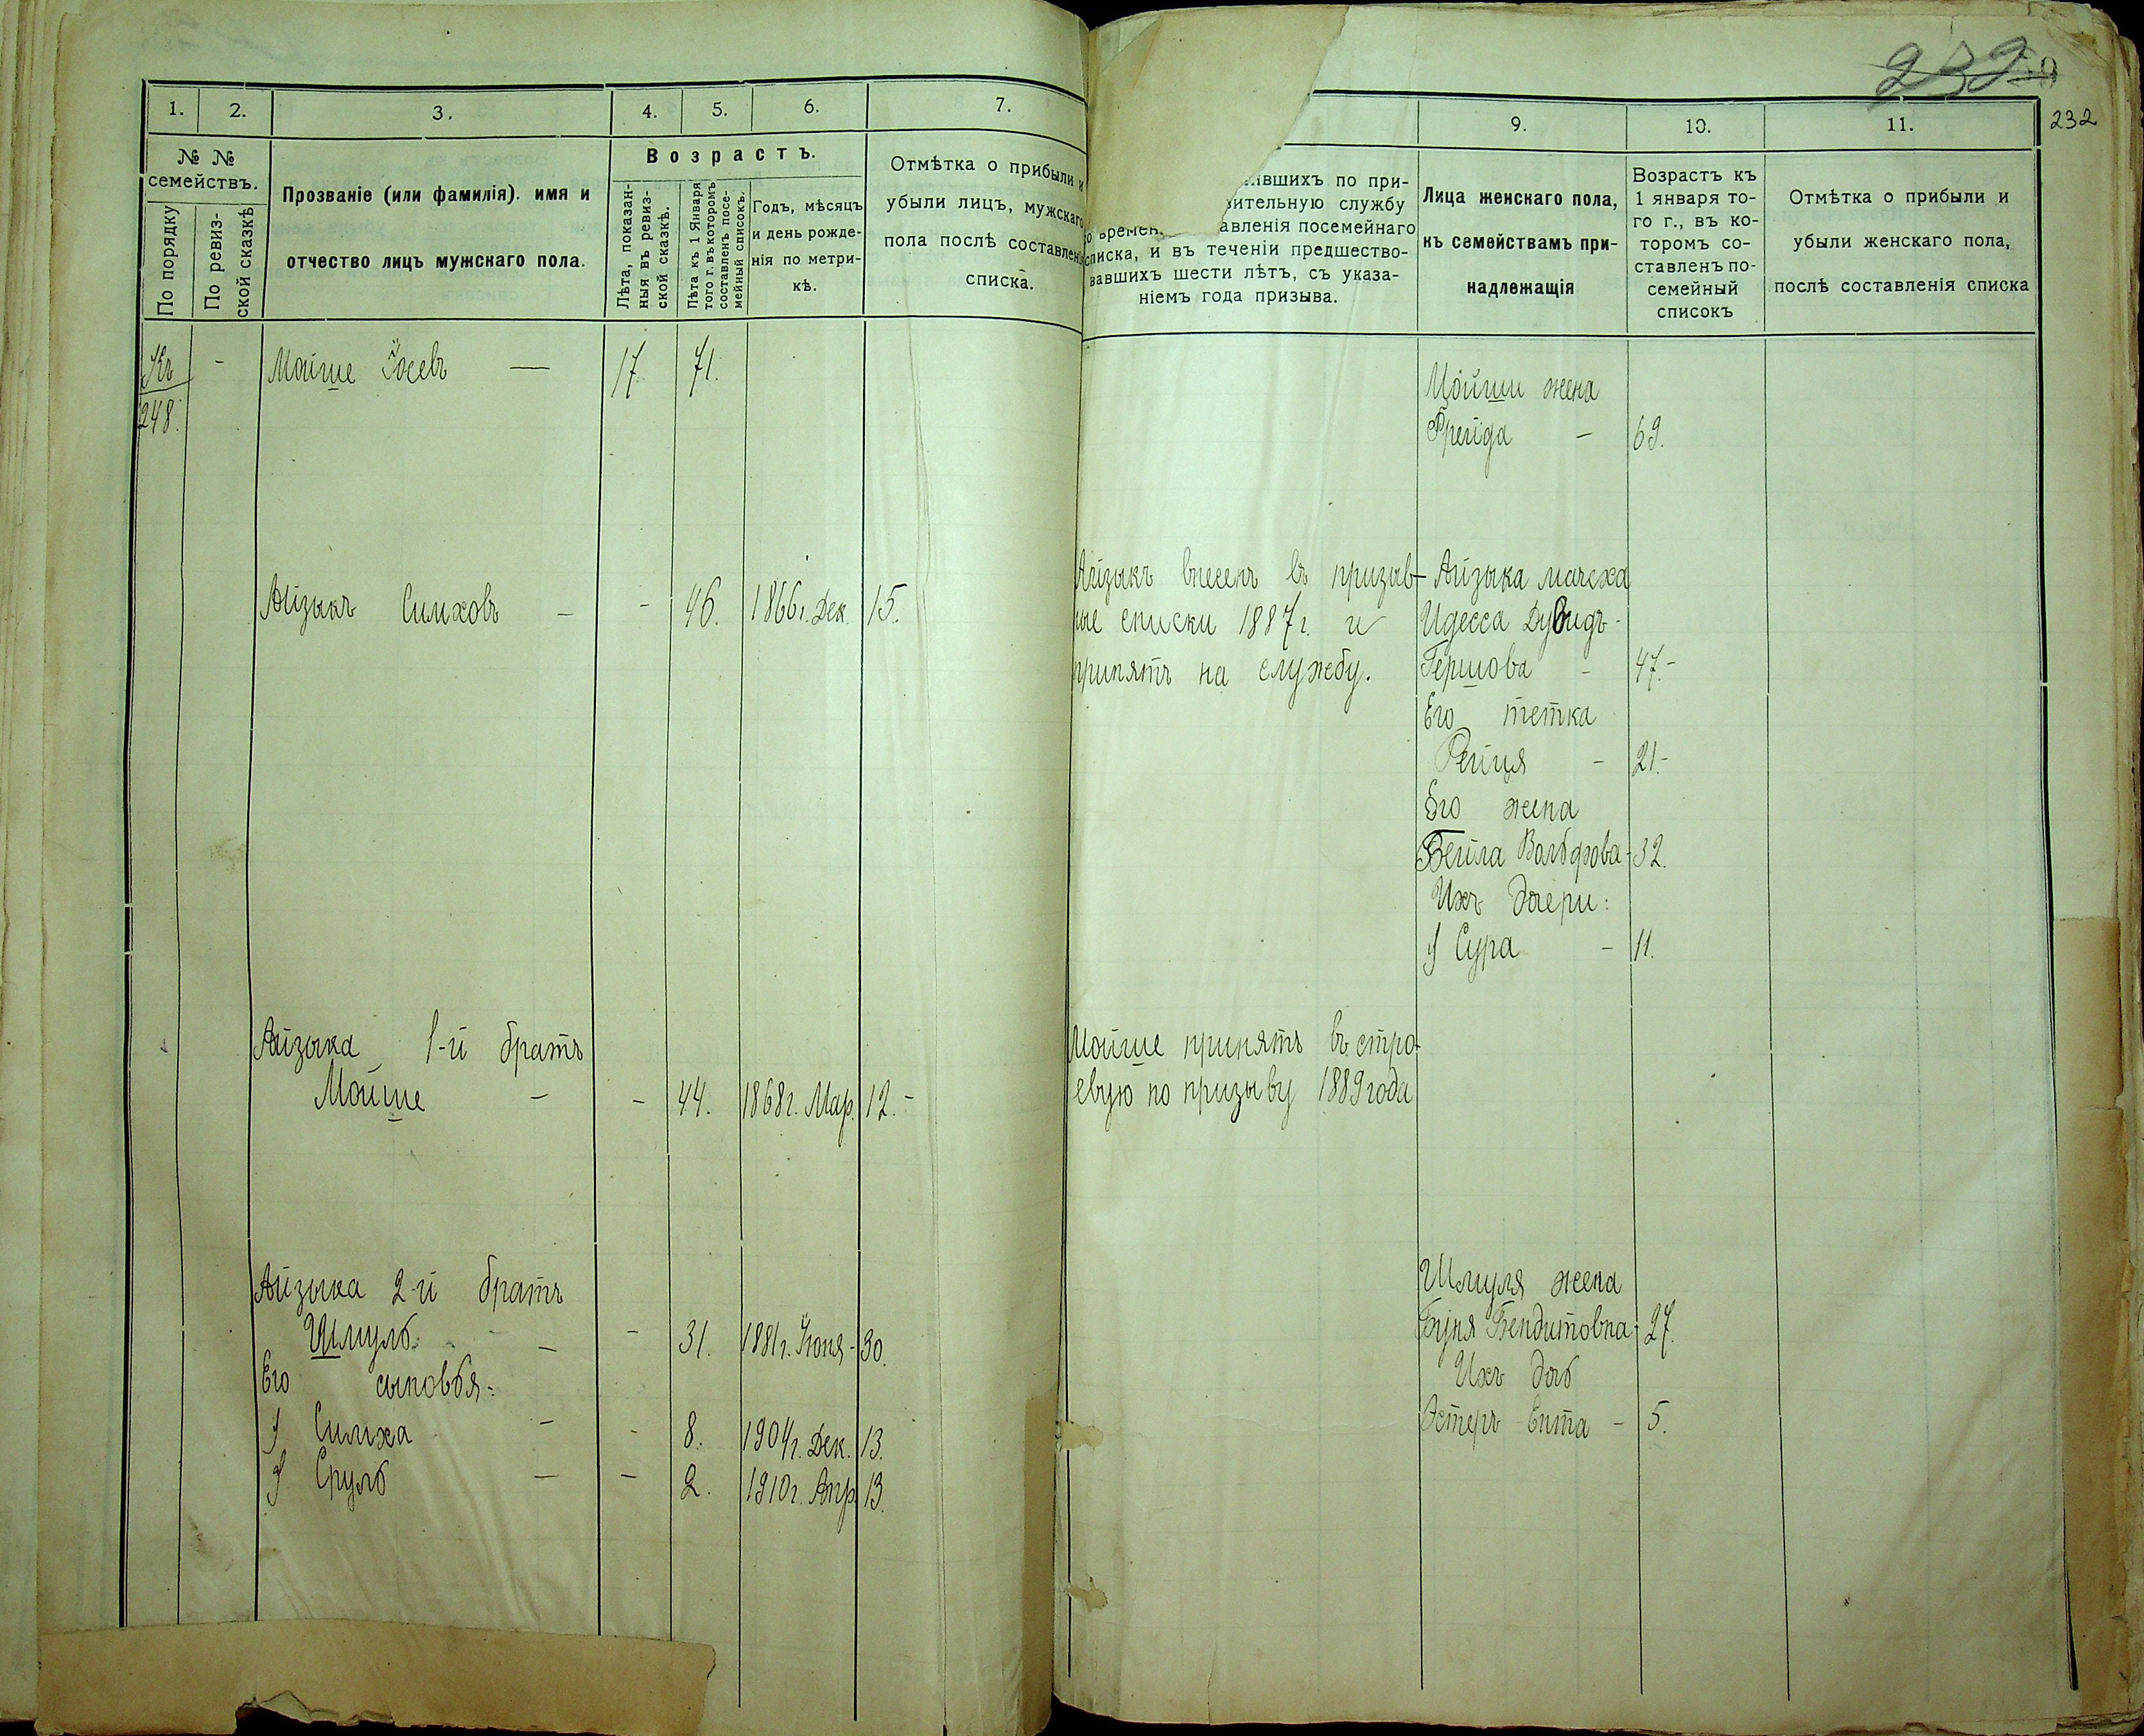 232
232
1. 2. 3. 4. 5. 6. 7.
№ №
семействъ.
По порядку
По ревиз-
ской сказкѣ
Прозваніе (или фамилія). имя и
отчество лицъ мужскаго пола.
Возрастъ.
Лѣта, показан-
ныя въ ревиз-
ской сказкѣ.
Лѣта къ 1 Января
того г. въ которомъ
составленъ посе-
мейный списокъ.
Годъ, мѣсяцъ
и день рожде-
нія по метри-
кѣ.
Отмѣтка о прибыли и
убыли лицъ, мужскаго
пола послѣ составленія
списка.
Къ - Мойше Іосевъ — 17 71.
248.
Айзыкъ Симховъ - - 46. 1866г. Дек. 15.
Айзыка 1-й братъ
Мойше - - 44. 1868г. Мар. 12.-
Айзыка 2-й братъ
Шмуль - - 31. 1881г. Іюня - 30.
Его сыновья:
1) Симха - - 8. 1904г. Дек. 13.
2) Сруль - - 2. 1910г. Апр. 13.
9. 10. 11.
по при-
службу
посемейнаго
списка, и въ теченіи предшество-
вавшихъ шести лѣтъ, съ указа-
ніемъ года призыва.
Лица женскаго пола,
къ семействамъ при-
надлежащія
Возрастъ къ
1 января то-
го г., въ ко-
торомъ со-
ставленъ по-
семейный
списокъ
Отмѣтка о прибыли и
убыли женскаго пола,
послѣ составленія списка
Мойши жена
Фрейда - 69.
Айзыкъ внесенъ въ призыв- Айзыка мачеха
ные списки 1887г. и Идесса Дувидъ-
принятъ на службу. Гершова - 47.-
Его тетка
Рейця - 21.-
Его жена
Бейла Вольфова - 32.
Ихъ дочери:
1) Сура - 11.
Мойше принятъ въ стро-
евую по призыву 1889 года
Шмуля жена
Буня Бендитовна - 27.
Ихъ дочь
Эстеръ Ента - 5.